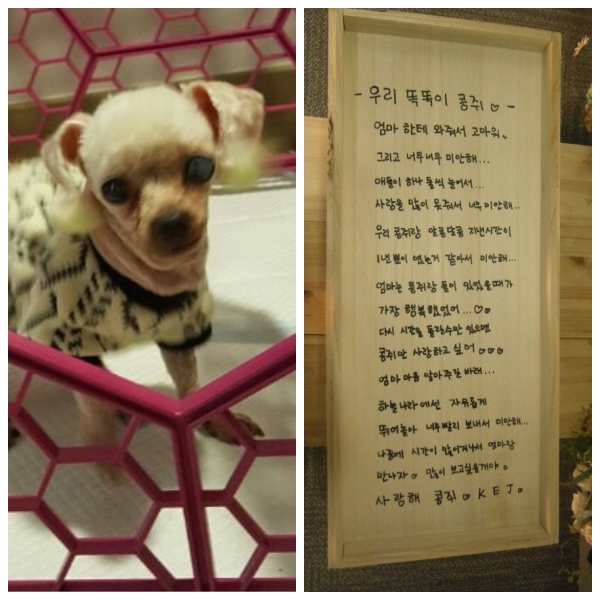 - 우리 똑똑이 콩쥐 ♡ -
엄마 한테 와줘서 고마워.
그리고 너무너무 미안해...
애들이 하나 둘씩 늘어서...
사랑을 많이 못줘서 너무 미안해..
우리 콩쥐랑 알콩달콩 지낸시간이
1년 뿐이 없는거 같아서 미안해...
엄마는 콩쥐랑 둘이 있었을때가
가장 행복했었어...♡
다시 시간을 돌린수만 있으면
콩쥐만 사랑하고 싶어 ♡♡♡
엄마 마음 알아주길 바래...
하늘나라에선 자유롭게
뛰어놀아 너무빨리 보내서 미안해...
나중에 시간이 많이지나서 엄마랑
만나자 ♡ 많이 보고싶을거야 ♡
사랑해 콩쥐 ♡ K E J